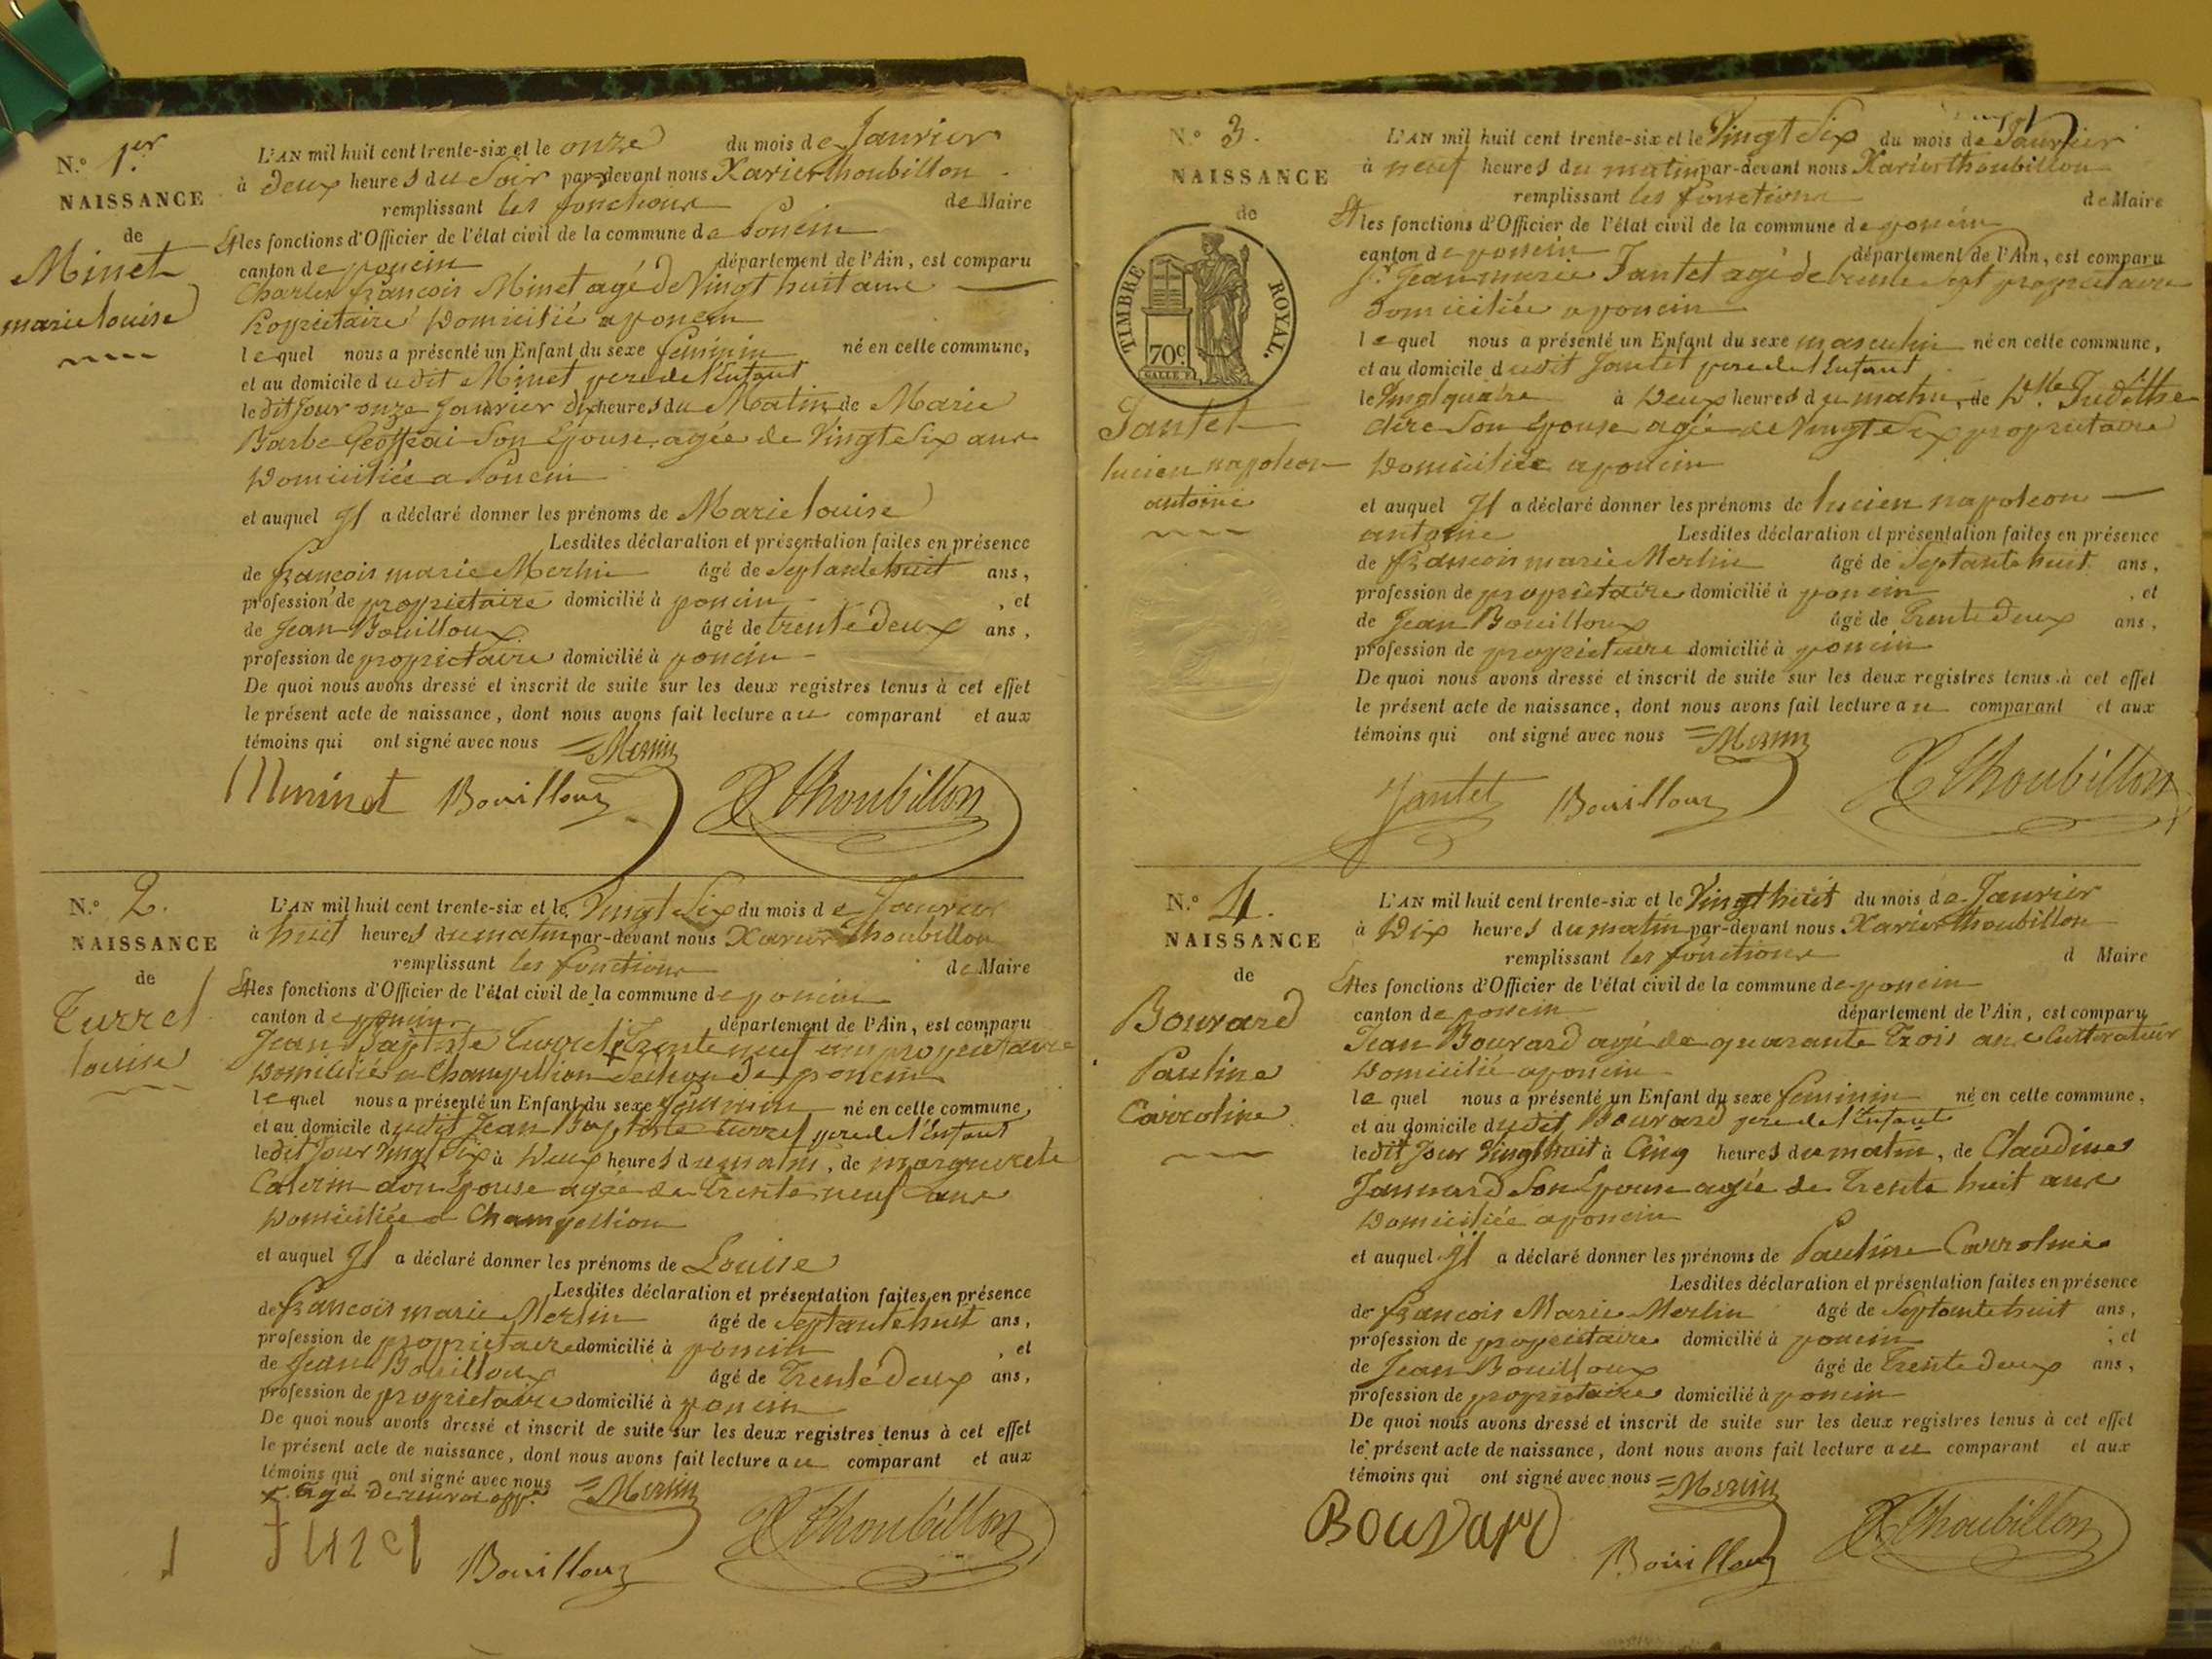 N.o 1.er
NAISSANCE
de
Minet
marie louise
L'AN mil huit cent trente-six et le onze du mois de Janvier
à deux heures du Soir par-devant nous Xavier Thoubillon
remplissant les fonctions de Maire
Et les fonctions d'Officier de l'état civil de la commune de Poncin
canton de poncin département de l'Ain, est comparu
Charles françois Minet agé de Vingt huit ans
Propriétaire Domicilié a poncin
lequel nous a présenté un Enfant du sexe féminin né en cette commune,
et au domicile dudit Minet pere de l'Enfant
ledit Jour onze Janvier dix heures du Matin de Marie
Barbe Son Epouse agée de Vingt Six ans
Domiciliée a Poncin
et auquel Il a déclaré donner les prénoms de Marie louise
Lesdites déclaration et présentation faites en présence
de françois marie Merlin âgé de Septante huit ans,
profession de propriétaire domicilié à poncin , et
de Jean Bouilloux âgé de trente deux ans,
profession de propriétaire domicilié à poncin
De quoi nous avons dressé et inscrit de suite sur les deux registres tenus à cet effet
le présent acte de naissance, dont nous avons fait lecture au comparant et aux
témoins qui ont signé avec nous Merlin
Bouilloux X Thoubillon
N.o 2.
NAISSANCE
de
Turrel
louise
L'AN mil huit cent trente-six et le Vingt Six du mois de Janvier
à huit heures du matin par-devant nous Xavier Thoubillon
remplissant les fonctions de Maire
Et les fonctions d'Officier de l'état civil de la commune de poncin
canton de poncin département de l'Ain, est comparu
Jean Baptiste Turrel + trente neuf ans propriétaire
Domicilié a Champellion Section de poncin
lequel nous a présenté un Enfant du sexe féminin né en cette commune,
et au domicile dudit Jean Baptiste turrel pere de l'Enfant
ledit Jour Vingt Six à Deux heures du matin, de marguerite
Son Epouse agée de Trente neuf ans
Domiciliée a Champellion
et auquel Il a déclaré donner les prénoms de Louise
Lesdites déclaration et présentation faites en présence
de françois marie Merlin âgé de Septante huit ans,
profession de propriétaire domicilié à poncin , et
de Jean Bouilloux âgé de Trente deux ans,
profession de propriétaire domicilié à poncin
De quoi nous avons dressé et inscrit de suite sur les deux registres tenus à cet effet
le présent acte de naissance, dont nous avons fait lecture au comparant et aux
témoins qui ont signé avec nous Merlin
+ agé de
Bouilloux X Thoubillon
N.o 3.
NAISSANCE
de
TIMBRE ROYAL.
70c
Jantet
lucien napoleon
antoine
L'AN mil huit cent trente-six et le Vingt Six du mois de Janvier
à neuf heures du matin par-devant nous Xavier Thoubillon
remplissant les fonctions de Maire
Et les fonctions d'Officier de l'état civil de la commune de poncin
canton de poncin département de l'Ain, est comparu
Sr. Jean marie Jantet agé de trente Sept propriétaire
Domiciliée a poncin
lequel nous a présenté un Enfant du sexe masculin né en cette commune,
et au domicile dudit Jantet pere de l'Enfant
le Vingt quatre à Deux heures du matin, de
Son Epouse agée de Vingt Six propriétaire
Domiciliée a poncin
et auquel Il a déclaré donner les prénoms de lucien napoleon
antoine Lesdites déclaration et présentation faites en présence
de françois marie Merlin âgé de Septante huit ans,
profession de propriétaire domicilié à poncin , et
de Jean Bouilloux âgé de Trente deux ans,
profession de propriétaire domicilié à poncin
De quoi nous avons dressé et inscrit de suite sur les deux registres tenus à cet effet
le présent acte de naissance, dont nous avons fait lecture au comparant et aux
témoins qui ont signé avec nous Merlin
Jantet Bouilloux X Thoubillon
N.o 4.
NAISSANCE
de
Bouvard
Pauline
Carroline
L'AN mil huit cent trente-six et le Vingt huit du mois de Janvier
à Dix heures du matin par-devant nous Xavier Thoubillon
remplissant les fonctions d Maire
Et les fonctions d'Officier de l'état civil de la commune de poncin
canton de poncin département de l'Ain, est comparu
Jean Bouvard agé de quarante Trois ans Cultivateur
Domicilié a poncin
lequel nous a présenté un Enfant du sexe féminin né en cette commune,
et au domicile dudit Bouvard pere de l'Enfant
ledit Jour Vingt huit à Cinq heures du matin, de Claudine
Son Epouse agée de Trente huit ans
Domiciliée a poncin
et auquel Il a déclaré donner les prénoms de Pauline Carroline
Lesdites déclaration et présentation faites en présence
de françois Marie Merlin âgé de Septante huit ans,
profession de propriétaire domicilié à poncin , et
de Jean Bouilloux âgé de Trente deux ans,
profession de propriétaire domicilié à poncin
De quoi nous avons dressé et inscrit de suite sur les deux registres tenus à cet effet
le présent acte de naissance, dont nous avons fait lecture au comparant et aux
témoins qui ont signé avec nous Merlin
Bouvard Bouilloux X Thoubillon